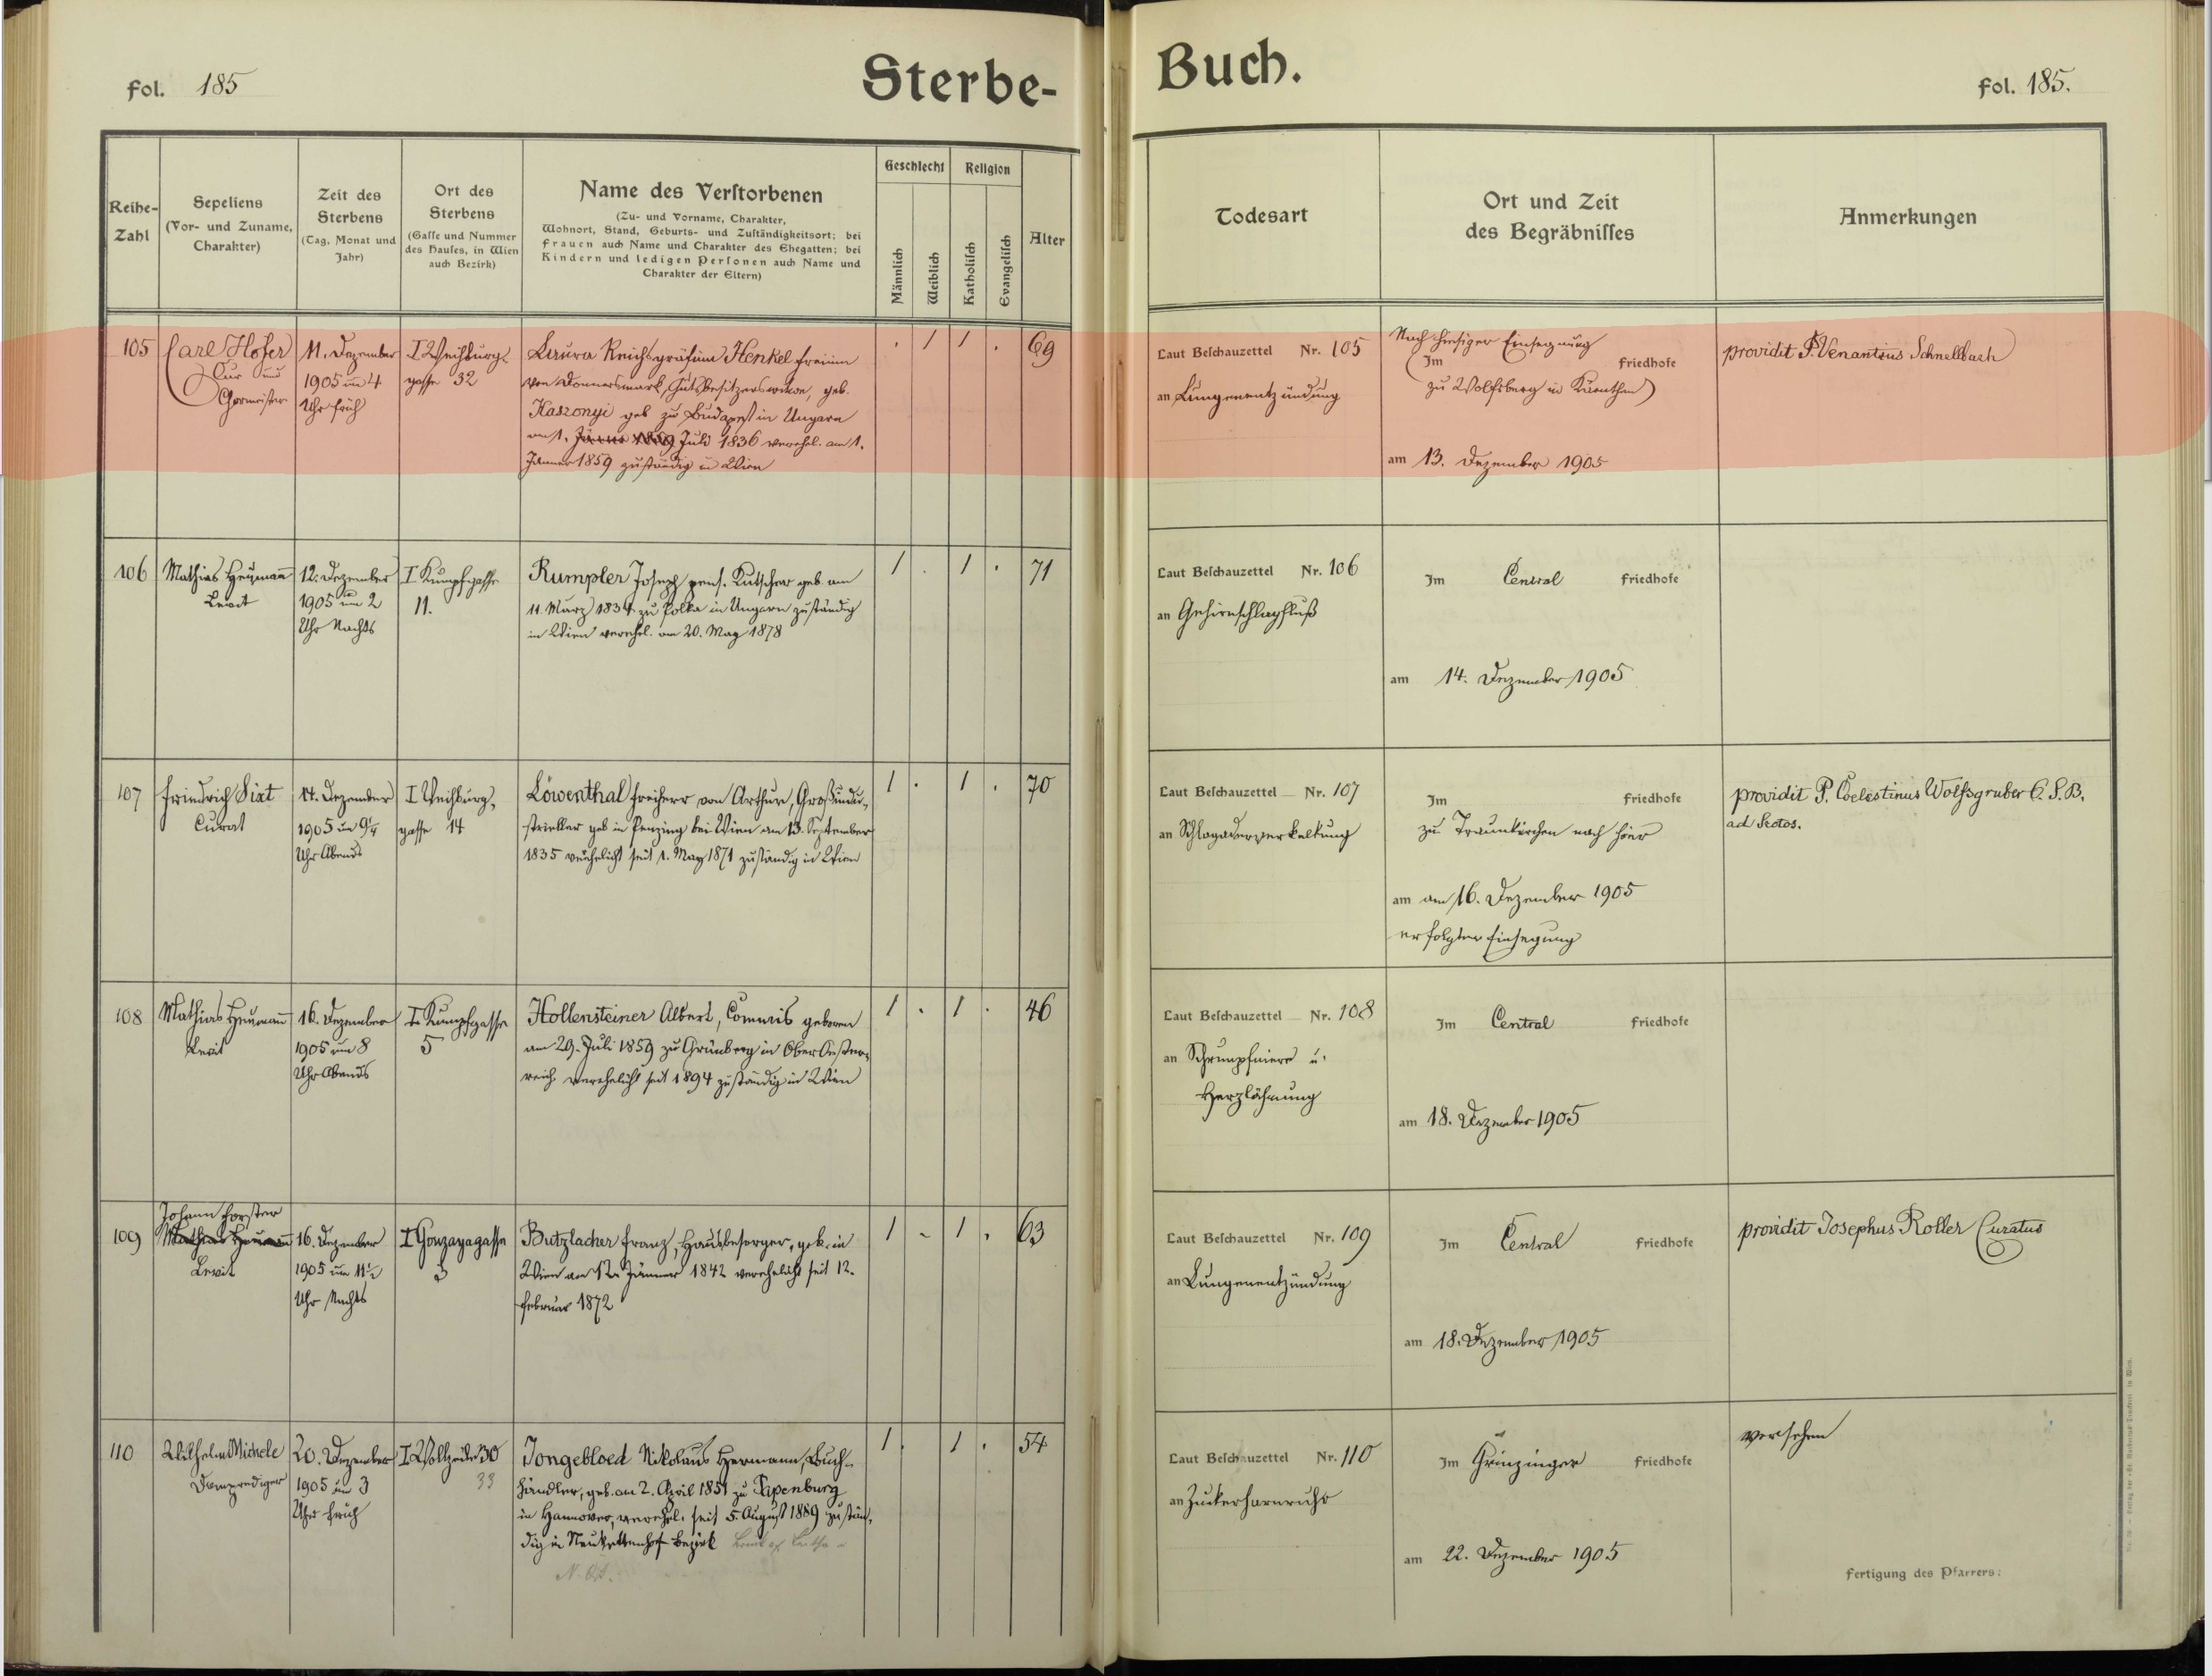 fol. 185
Sterbe-
Buch.
fol. 185.
Reihe-
Zahl
Sepeliens
(Vor- und Zuname,
Charakter)
Zeit des
Sterbens
(Tag, Monat und
Jahr)
Ort des
Sterbens
(Gasse und Nummer
des Hauses, in Wien
auch Bezirk)
Name des Verstorbenen
(Zu- und Vorname, Charakter,
Wohnort, Stand, Geburts- und Zuständigkeitsort; bei
Frauen auch Name und Charakter des Ehegatten; bei
Kindern und ledigen Personen auch Name und
Charakter der Eltern)
Geschlecht
Männlich
Weiblich
Religion
Katholisch
Evangelisch
Alter
Todesart
Ort und Zeit
des Begräbnisses
Anmerkungen
105
Carl Hofer
Cur und
Chormeister
11. Dezember
1905 um 4
Uhr früh
I Weihburg-
gasse 32
Laura Reichsgräfin Henkel Freiin
von Donnersmark, Gutsbesitzerswitwe, geb.
Kaszonyi geb zu Budapest in Ungarn
am 1. Juli 1836 verehel. am 1.
Jänner 1859 zuständig in Wien
. 1 1 .
69
Laut Beschauzettel Nr. 105
an Lungenentzündung
Nach hiesiger Einsegnung
(Im Friedhofe
zu Wolfsberg in Kärnthen)
am 13. Dezember 1905
providit P. Venantius Schnellbach
106
Mathias Heumann
Levit
12. Dezember
1905 um 2
Uhr Nachts
I Kumpfgasse
11.
Rumpler Joseph pens. Kutscher geb am
11. März 1834 zu Polka in Ungarn zuständig
in Wien verehel. am 20. May 1878
1 . 1 .
71
Laut Beschauzettel Nr. 106
an Gehirnschlagfluß
Im Central Friedhofe
am 14. Dezember 1905
107
Friedrich Sixt
Curat
14. Dezember
1905 um 9¼
Uhr Abends
I Weihburg-
gasse 14
Löwenthal Freiherr von Arthur, Großindu-
strieller geb in Penzing bei Wien am 13. September
1835 verehelicht seit 1. May 1871 zuständig in Wien
1 . 1 .
70
Laut Beschauzettel Nr. 107
an Schlagaderverkalkung
Im Friedhofe
zu Traunkirchen nach hier
am am 16. Dezember 1905
erfolgter Einsegnung
providit P. Coelestinus Wolfsgruber O. S. B.
ad Scotos.
108
Mathias Heumann
Levit
16. Dezember
1905 um 8
Uhr Abends
I Kumpfgasse
5
Hollensteiner Albert, Commis geboren
am 29. Juli 1859 zu Grünberg in Ober Oester-
reich verehelicht seit 1894 zuständig in Wien
1 . 1 .
46
Laut Beschauzettel Nr. 108
an Schrumpfniere u.
Herzlähmung
Im Central Friedhofe
am 18. Dezember 1905
109
Johann Forster
Mathias Heumann
Levit
16. Dezember
1905 um 11½
Uhr Nachts
I Gonzagagasse
3
Butzlacher Franz, Hausbesorger, geb. in
Wien am 12. Jänner 1842 verehelicht seit 12.
Februar 1872
1 . 1 .
63
Laut Beschauzettel Nr. 109
an Lungenentzündung
Im Central Friedhofe
am 18. Dezember 1905
providit Josephus Roller Curatus
110
Wilhelm Michele
Domprediger
20. Dezember
1905 um 3
Uhr früh
I Wollzeile 30
33
Jongebloed Nikolaus Hermann, Buch-
händler, geb. am 2. April 1851 zu Papenburg
in Hannover, verehel. seit 5. August 1889 zustän-
dig in Neukettenhof Bezirk
N. Ö.
1 . 1 .
54
Laut Beschauzettel Nr. 110
an Zuckerharnruhr
Im Grinzinger Friedhofe
am 22. Dezember 1905
versehen
Fertigung des Pfarrers: